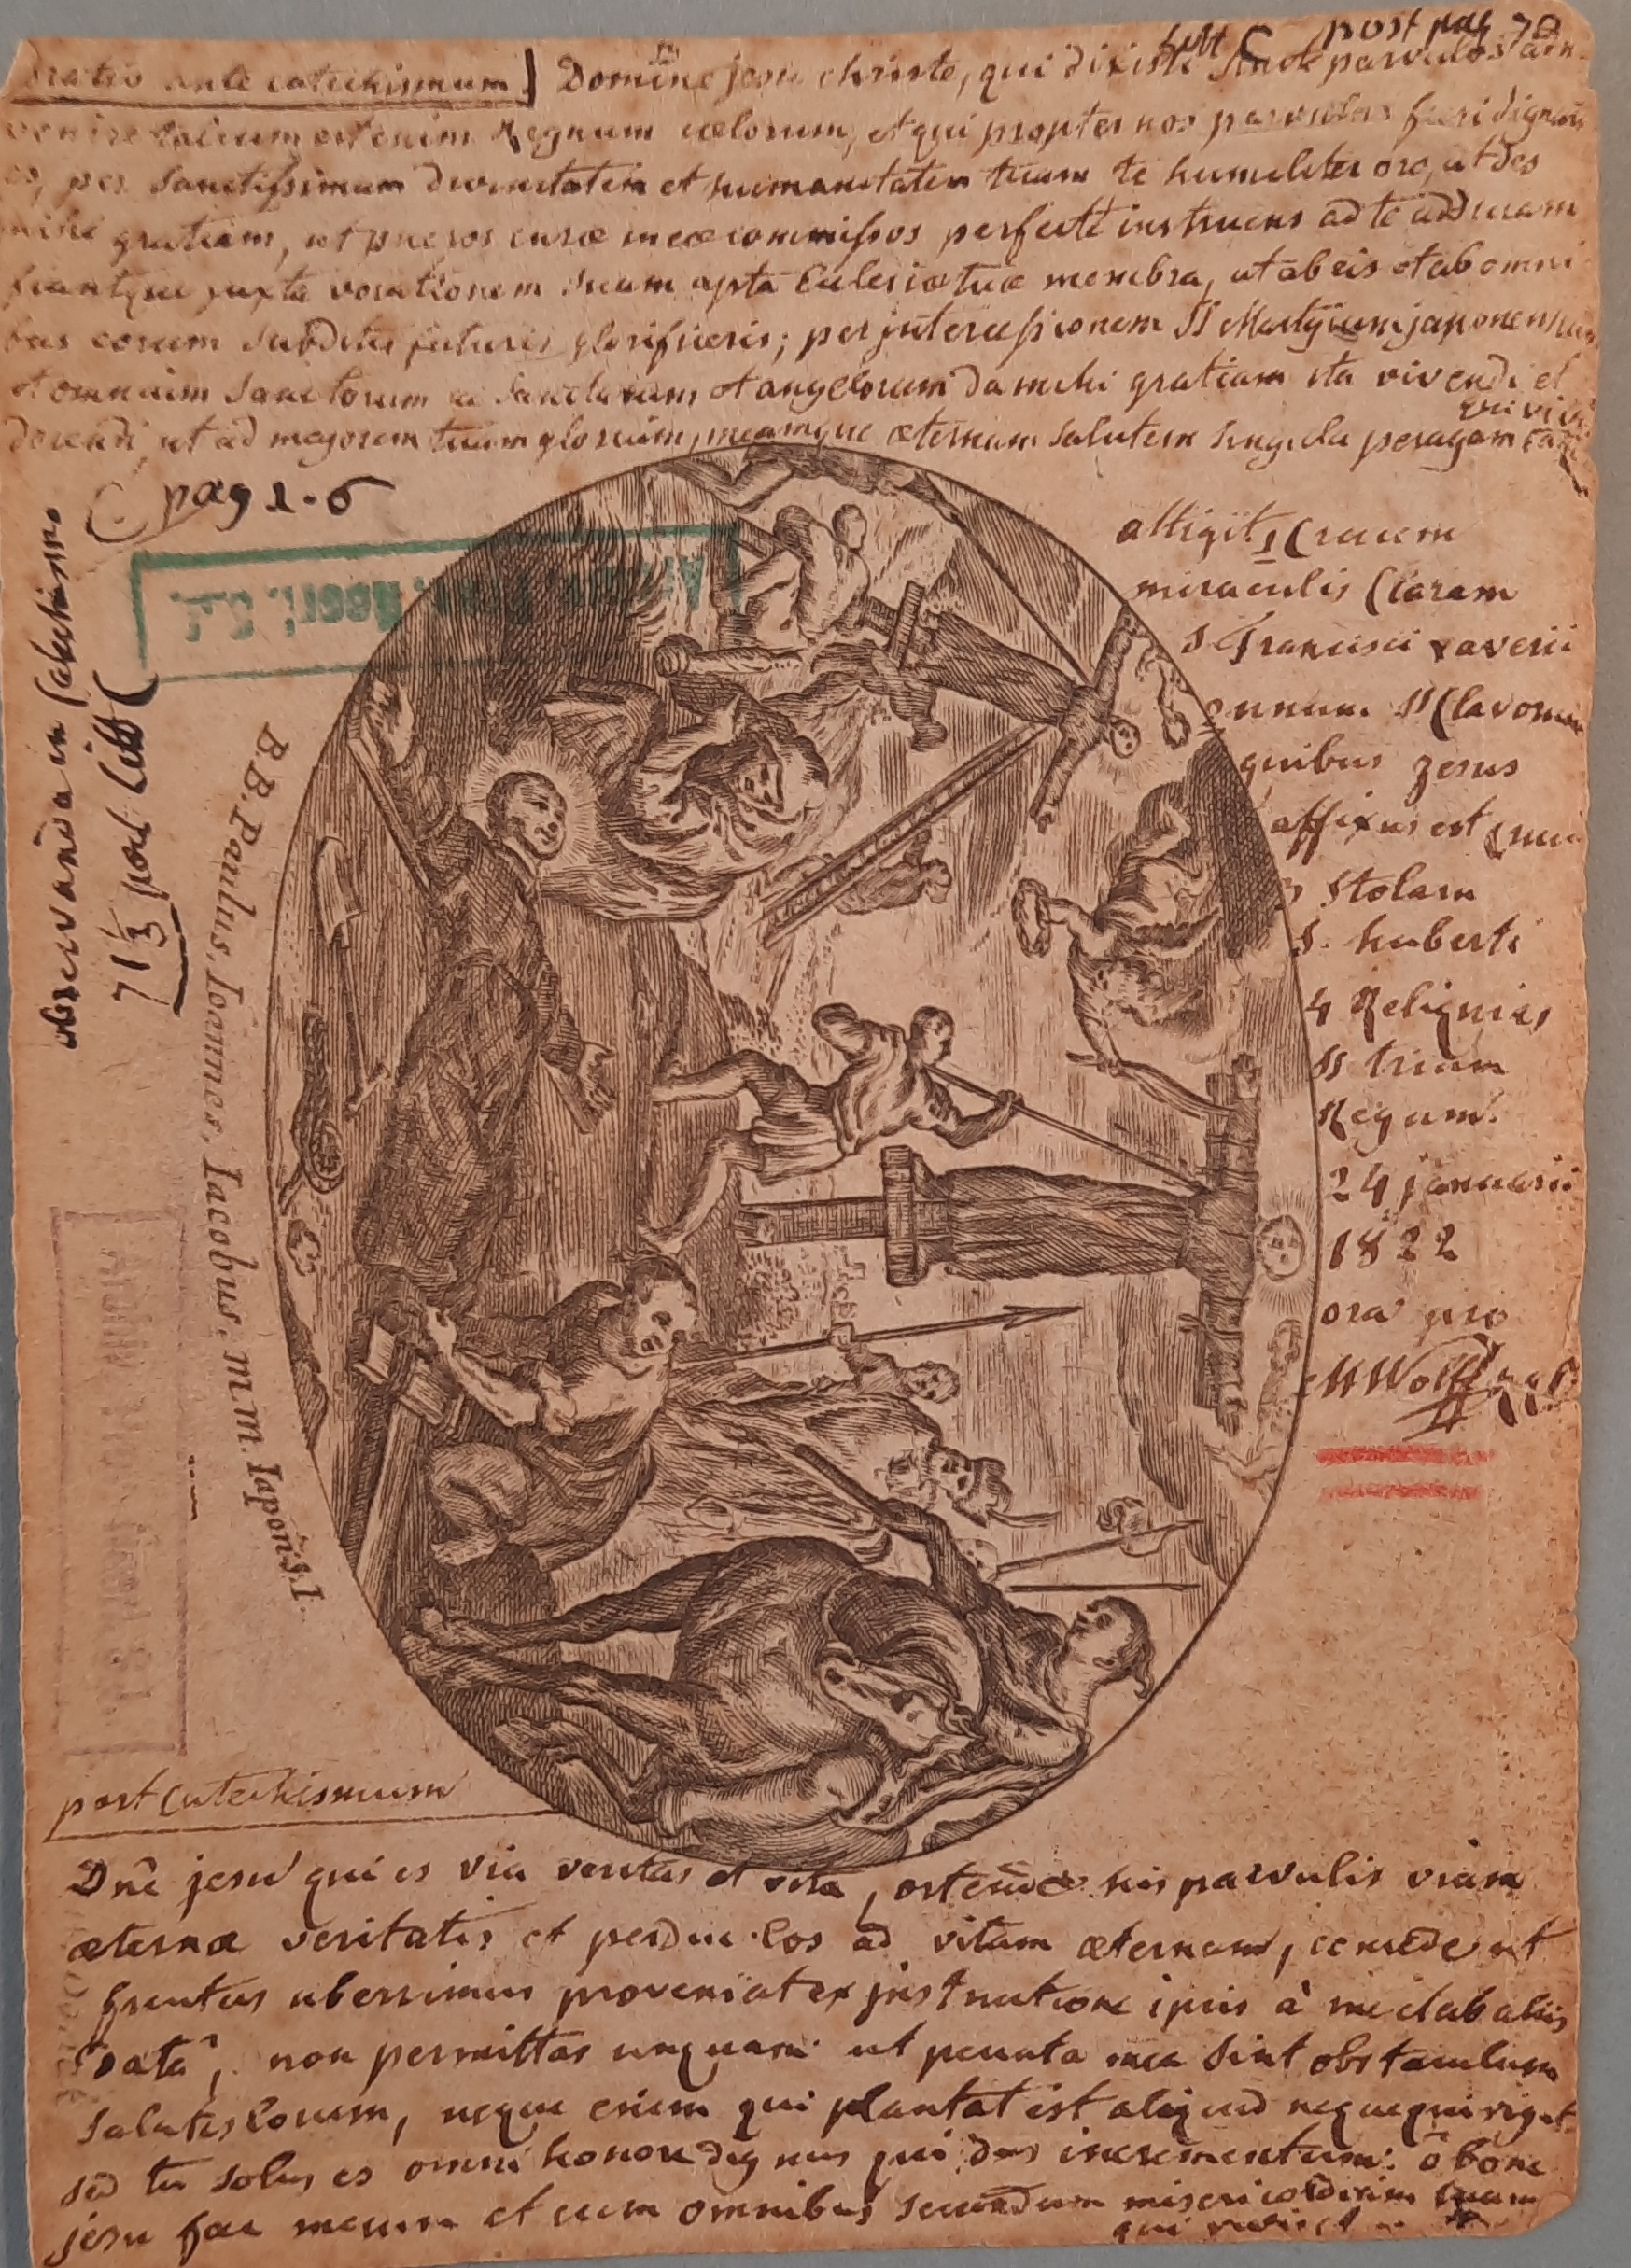 Litt C post pag 70
Oratio ante catechismum] Domine Jesu christe, qui dixisti Sinite parvulos ad me
venire talium est enim Regnum cœlorum, et qui propter nos parvulus fieri dignatus
es, per Sanctissimam divinitatem et humanitatem tuam te humiliter oro, ut des
mihi gratiam, ut pueros curæ meæ commissos perfecte instruens ad te adducam
fiantque juxta vocationem suam apta Ecclesiæ tuæ membra, ut ab eis et ab omni
bus eorum subditis futuris glorificeris; per intercessionem SS Martyrum japonensium
et omnium Sanctorum ac Sanctarum et angelorum da mihi gratiam ita vivendi et
docendi, ut ad majorem tuam gloriam, meamque æternam salutem singula peragam
qui vivis
C pag 1-6
observanda in
71 1/3 post Litt C
attigit 1 Crucem
miraculis Claram
S Francisci xaverii
unum SS Clavorum
quibus Jesus
affixus est cruci
3 Stolam
S. huberti
4 Reliquias
SS trium
Regum.
24 januarii
1822
ora pro
MWolff
B.B. Paulus, Ioannes, Iacobus, m.m. Iapon. S.I.
post catechismum
Dne jesu qui es via veritas et vita, ostende his parvulis viam
æternæ veritatis et perduc eos ad vitam æternam, concede ut
fructus uberrimus proveniat ex instructione ipsis à me et ab aliis
data, non permittas unquam ut peccata mea sint obstaculum
salutis eorum, neque enim qui plantat est aliquid neque qui rigat
sed tu solus es omni honore dignus qui das incrementum: ô bone
jesu fac mecum et cum omnibus secundum misericordiam tuam
qui vivis et